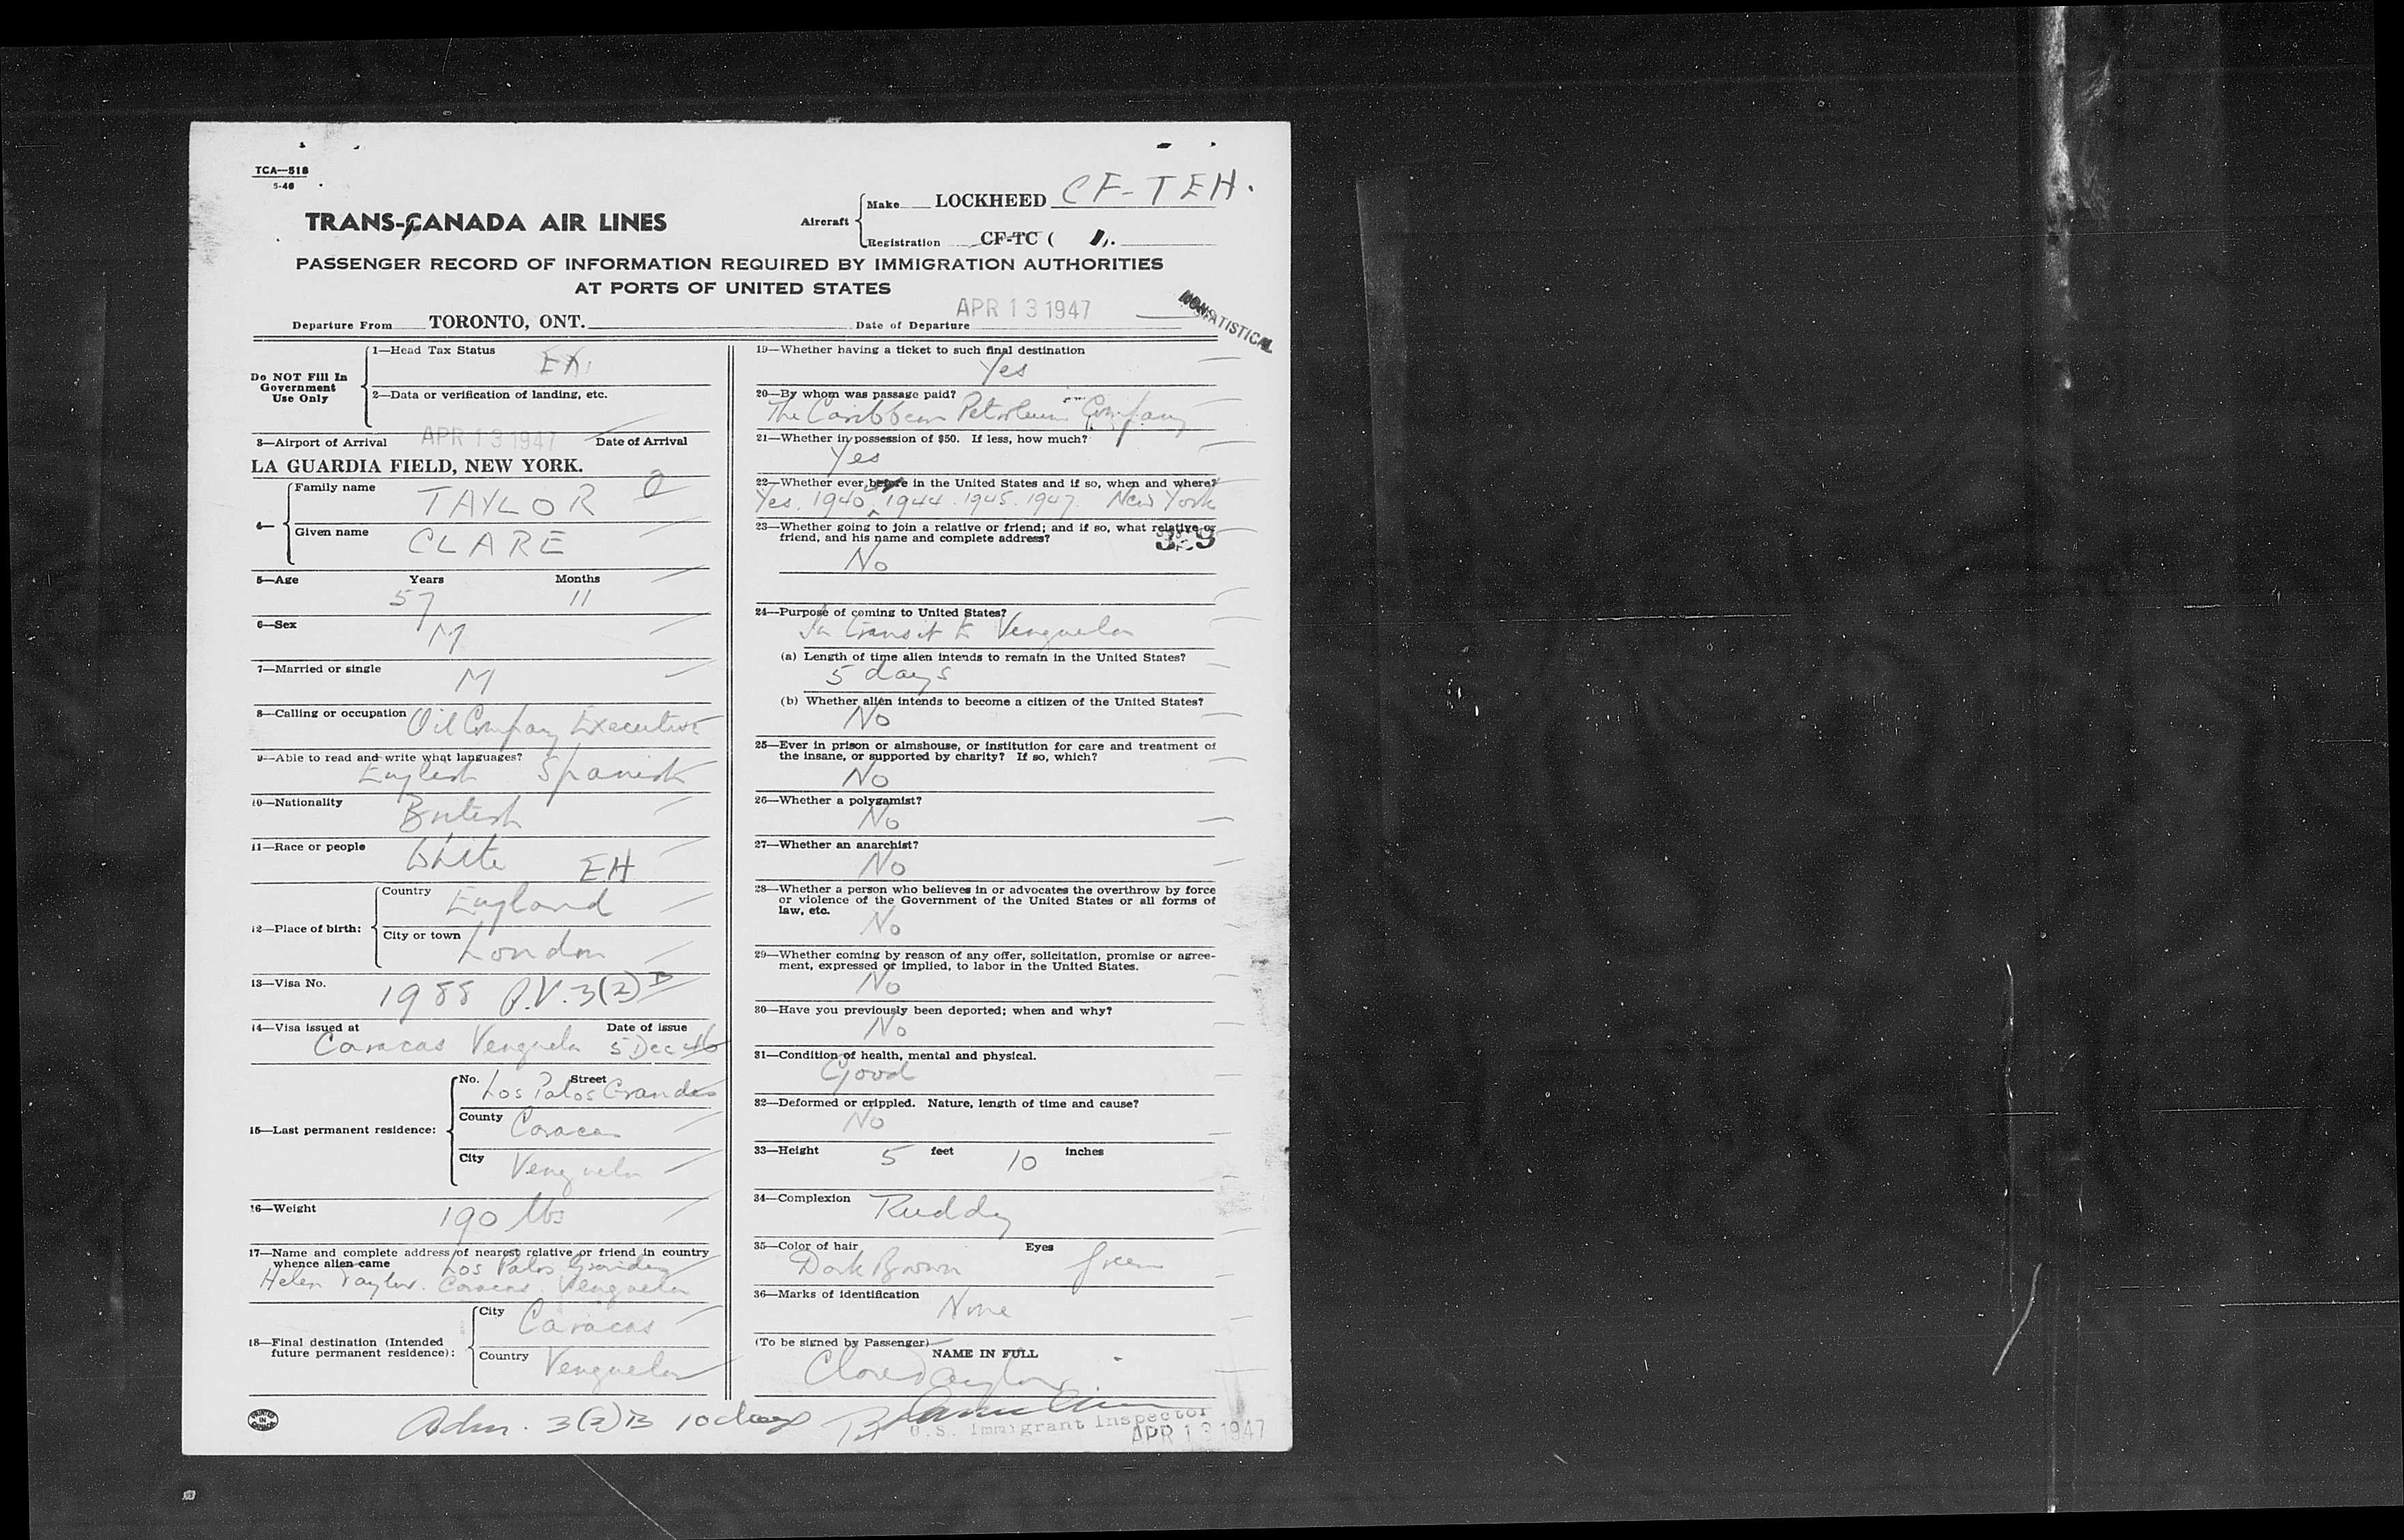 TCA—518
5-46
Aircraft
Make LOCKHEED CF-TEH.
TRANS-CANADA AIR LINES
Registration CF-TC (
PASSENGER RECORD OF INFORMATION REQUIRED BY IMMIGRATION AUTHORITIES
AT PORTS OF UNITED STATES
Departure From TORONTO, ONT. Date of Departure APR 13 1947
Do NOT Fill In
Government
Use Only
1—Head Tax Status
EX
2—Data or verification of landing, etc.
3—Airport of Arrival APR 13 1947 Date of Arrival
LA GUARDIA FIELD, NEW YORK.
4—
Family name TAYLOR
Given name CLARE
5—Age Years Months
57 11
6—Sex M
7—Married or single M
8—Calling or occupation Oil Company Executive
9—Able to read and write what languages?
English Spanish
10—Nationality British
11—Race or people White EH
12—Place of birth:
Country England
City or town London
13—Visa No. 1988 P.V. 3(2) B
14—Visa issued at Date of issue
Caracas Venezuela 5 Dec 46
15—Last permanent residence:
No. Street
Los Palos Grandes
County Caracas
City Venezuela
16—Weight 190 lbs
17—Name and complete address of nearest relative or friend in country
whence alien came Los Palos Grandes
Helen Taylor. Caracas Venezuela
18—Final destination (Intended
future permanent residence):
City Caracas
Country Venezuela
PRINTED
IN
CANADA
NON STATISTICAL
19—Whether having a ticket to such final destination
Yes
20—By whom was passage paid?
The Caribbean Petroleum Company
21—Whether in possession of $50. If less, how much?
Yes
22—Whether ever before in the United States and if so, when and where?
Yes. 1940 1944. 1945. 1947. New York
23—Whether going to join a relative or friend; and if so, what relative or
friend, and his name and complete address?
No
24—Purpose of coming to United States?
In transit to Venezuela
(a) Length of time alien intends to remain in the United States?
5 days
(b) Whether alien intends to become a citizen of the United States?
No
25—Ever in prison or almshouse, or institution for care and treatment of
the insane, or supported by charity? If so, which?
No
26—Whether a polygamist?
No
27—Whether an anarchist?
No
28—Whether a person who believes in or advocates the overthrow by force
or violence of the Government of the United States or all forms of
law, etc.
No
29—Whether coming by reason of any offer, solicitation, promise or agree-
ment, expressed or implied, to labor in the United States.
No
30—Have you previously been deported; when and why?
No
31—Condition of health, mental and physical.
Good
32—Deformed or crippled. Nature, length of time and cause?
No
33—Height 5 feet 10 inches
34—Complexion Ruddy
35—Color of hair Eyes
Dark Brown Green
36—Marks of identification
None
(To be signed by Passenger)
NAME IN FULL
Clare Taylor
Adm. 3(2)B 10 days
U.S. Immigrant Inspector
APR 13 1947